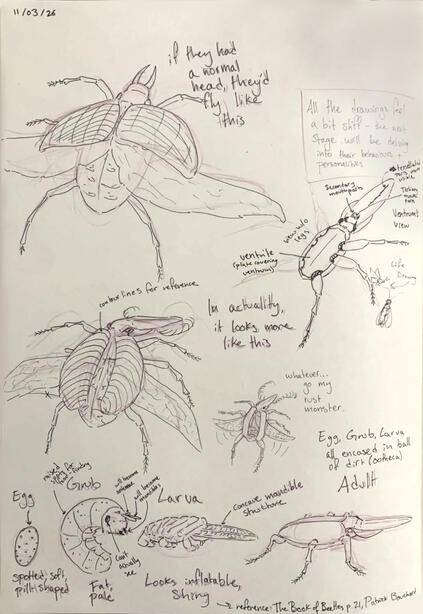 11/03/26
if they had
a normal
head, they'd
fly like
this
All the drawings feel
a bit stiff - the next
stage will be delving
into their behaviours +
personalities
Ventral
View
view w/o
legs
ventrite
(plate covering
Life
Drawing
contour lines for reference
In actuality,
it looks more
like this
whatever...
go my
rust
monster.
Egg, Grub, Larva
all encased in ball
of dirt (ootheca)
Adult
Egg
spotted, soft,
pill shaped
Grub
will become
will become
mandibles
Can't
usually
see
Fat,
pale
Larva
Looks inflatable,
Shiny
concave mandible
structure
reference: The Book of Beetles p. 21, Patrice Bouchard